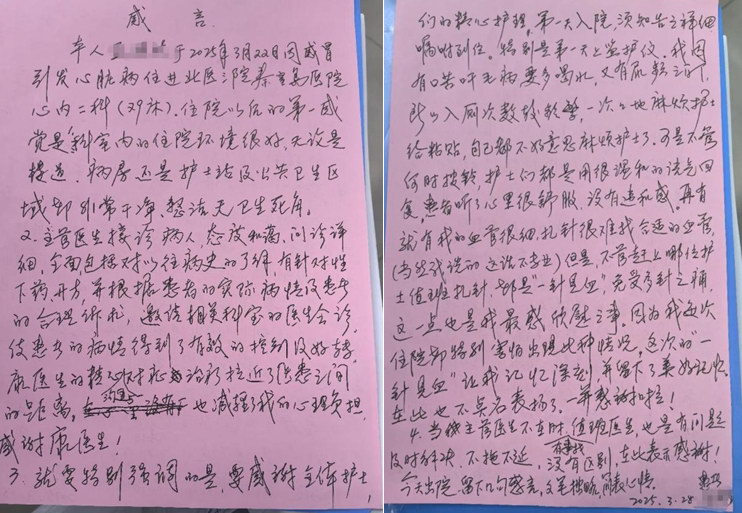 感言
本人 于2025年3月22日因感冒
引发心脏病住进北医三院秦皇岛医院
心内二科(29床)。住院以后的第一感
觉是科室内的住院环境很好,无论是
楼道、病房还是护士站及公共卫生区
域都非常干净、整洁无卫生死角。
2、主管医生接诊病人,态度和蔼,问诊详
细,全面包括对以往病史的了解,有针对性
下药、开方,并根据患者的实际病情及患者
的合理诉求,邀请相关科室的医生会诊,
使患者的病情得到了有效的控制及好转,
康医生的精心对症诊断拉近了医患之间
的距离, 也减轻了我的心理负担,
感谢康医生!
3、就要特别强调的是,要感谢全体护士
们的精心护理,第一天入院,须知告之详细
嘱咐到位。特别是第一天上监护仪,我因
有 病要多喝水,又有 之 ,
所以入厕次数较频繁,一次次地麻烦护士
给粘贴,自己都不好意思麻烦护士了。可是不管
何时按铃,护士们都是用很温和的语气回
复,患者听了心里很舒服,没有违和感。再有
就有我的血管很细,扎针很难找合适的血管,
(当然我说的这话不专业)但是,不管赶上哪位护
士值班扎针,都是“一针见血”,免受多针之痛,
这一点也是我最感欣慰之事。因为我每次
住院都特别害怕出现此种情况。这次的“一
针见血”让我记忆深刻,并留下了美好记忆,
在此也不具名表扬了。一并感谢和拉!
4、当我主管医生不在时,值班医生,也是有问题
及时解决,不拖不延,没有区别,在此表示感谢!
今天出院,留下几句感言,文笔拙略,简表心情。
患者
2025.3.28